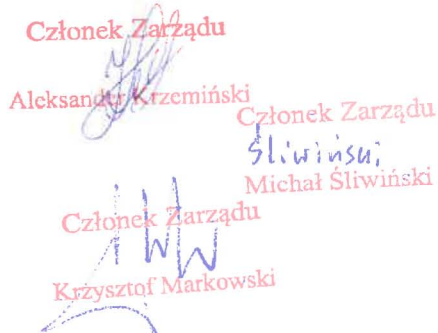 Członek Zarządu
Aleksander Krzemiński
Członek Zarządu
Śliwiński
Michał Śliwiński
Członek Zarządu
Krzysztof Markowski